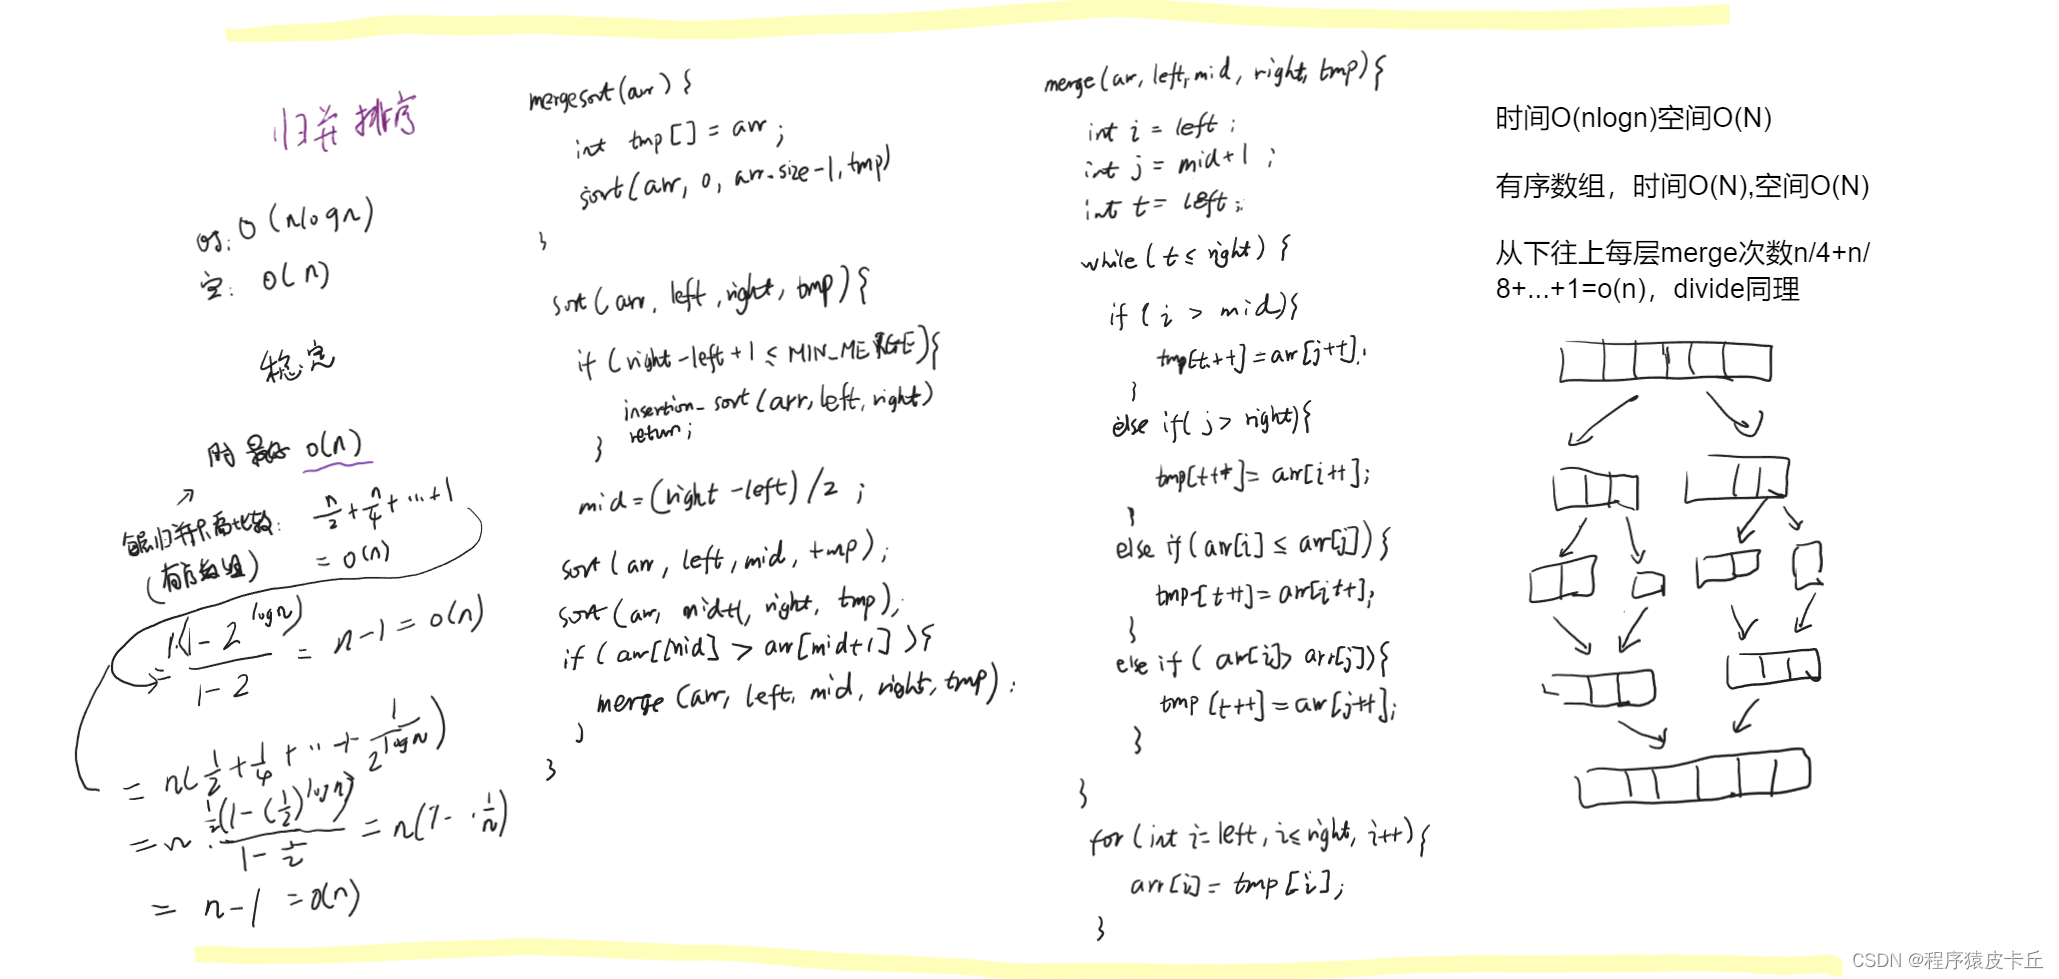 归并排序
时:O(nlogn)
空:O(n)
稳定
时 最好 O(n)
每层归并只需比较: n/2+n/4+...+1
(有序数组) =O(n)
=1·(1-2^logn)/(1-2) = n-1=O(n)
=n(1/2+1/4+...+1/2^logn)
=n·1/2(1-(1/2)^logn)/(1-1/2) =n(1-1/n)
= n-1 =O(n)
mergesort(arr) {
int tmp[] = arr ;
sort(arr, 0, arr.size-1, tmp)
}
sort(arr, left, right, tmp){
if (right-left+1 ≤ MIN_MERGE){
insertion_sort(arr, left, right)
return;
}
mid=(right-left)/2 ;
sort(arr, left, mid, tmp);
sort(arr, mid+1, right, tmp);
if (arr[mid] > arr[mid+1]){
merge(arr, left, mid, right, tmp);
}
}
merge(arr, left, mid, right, tmp){
int i = left ;
int j = mid+1 ;
int t = left ;
while(t ≤ right) {
if (i > mid){
tmp[t++]=arr[j++];
}
else if(j > right){
tmp[t++]= arr[i++];
}
else if(arr[i] ≤ arr[j]){
tmp[t++]=arr[i++];
}
else if( arr[i]> arr[j]){
tmp[t++]=arr[j++];
}
}
for(int i=left, i≤right, i++){
arr[i]= tmp[i];
}
时间O(nlogn)空间O(N)
有序数组，时间O(N),空间O(N)
从下往上每层merge次数n/4+n/
8+...+1=o(n)，divide同理
CSDN @程序猿皮卡丘